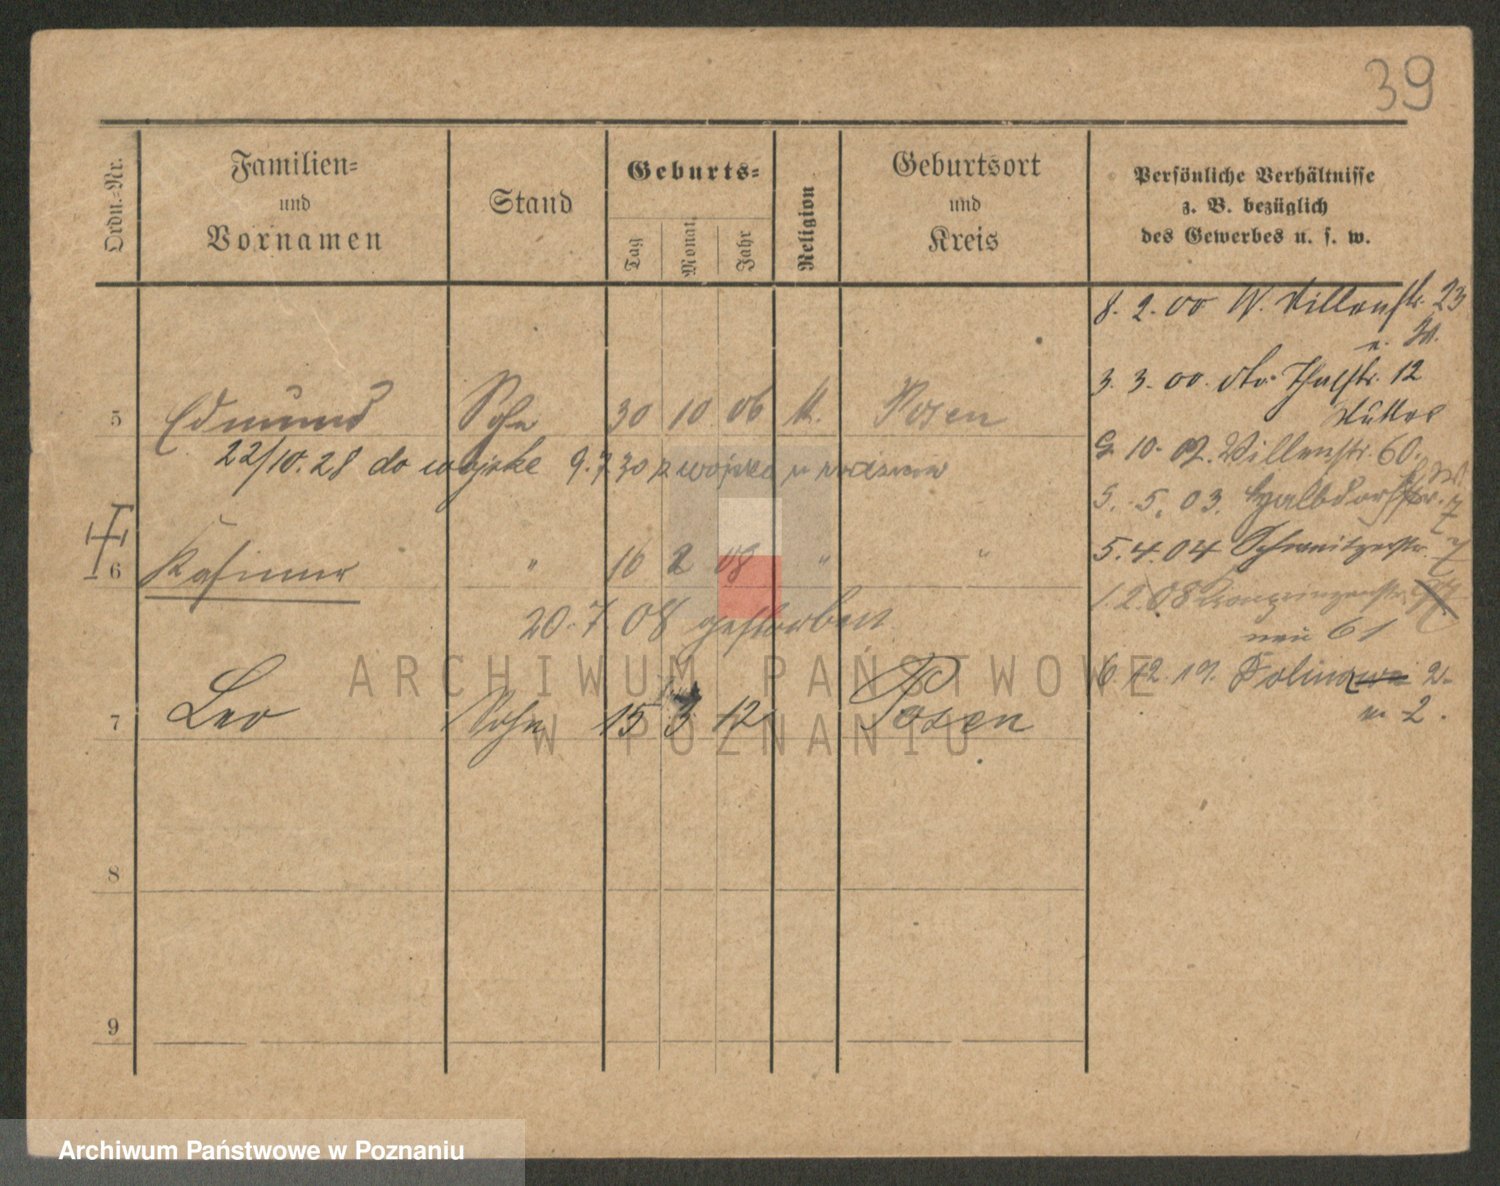 39
Ordn.-Nr.
Familien-
und
Vornamen
Stand
Geburts-
Tag
Monat
Jahr
Religion
Geburtsort
und
Kreis
Persönliche Verhältnisse
z. B. bezüglich
des Gewerbes u. s. w.
8. 2. 00 W. 23
3. 3. 00. 12
5 Edmund Sohn 30 10 06 k. Posen
10. 02. Villenstr. 60.
22/10.28 do wojska 9.7 30 z wojska
5. 5. 03. Halbdorfstr. 7
6 Kasimir " 10 2 08 " "
5. 4. 04
20.7.08 gestorben
1. 2. 08 Kronprinzenstr.
neu 61
6. 12. 19. 2.
7 Leo Sohn 15 3 12 Posen
2.
8
9
ARCHIWUM PAŃSTWOWE
W POZNANIU
Archiwum Państwowe w Poznaniu